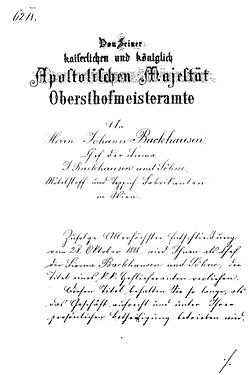 Von Seiner
kaiserlichen und königlich
Apostolischen Majestät
Obersthofmeisteramte
An
Herrn Johann Backhausen,
Chef der Firma
J. Backhausen und Söhne,
Möbelstoff und Teppich Fabrikanten
in Wien.
Zufolge Allerhöchster Entschließung
vom 28. Oktober 1888 wird Ihnen als Chef
der Firma Backhausen und Söhne, der
Titel eines k. k. Hoflieferanten verliehen.
Diesen Titel behalten Sie so lange, als
das Geschäft aufrecht und unter Ihrer
persönlichen Betheiligung betrieben wird.